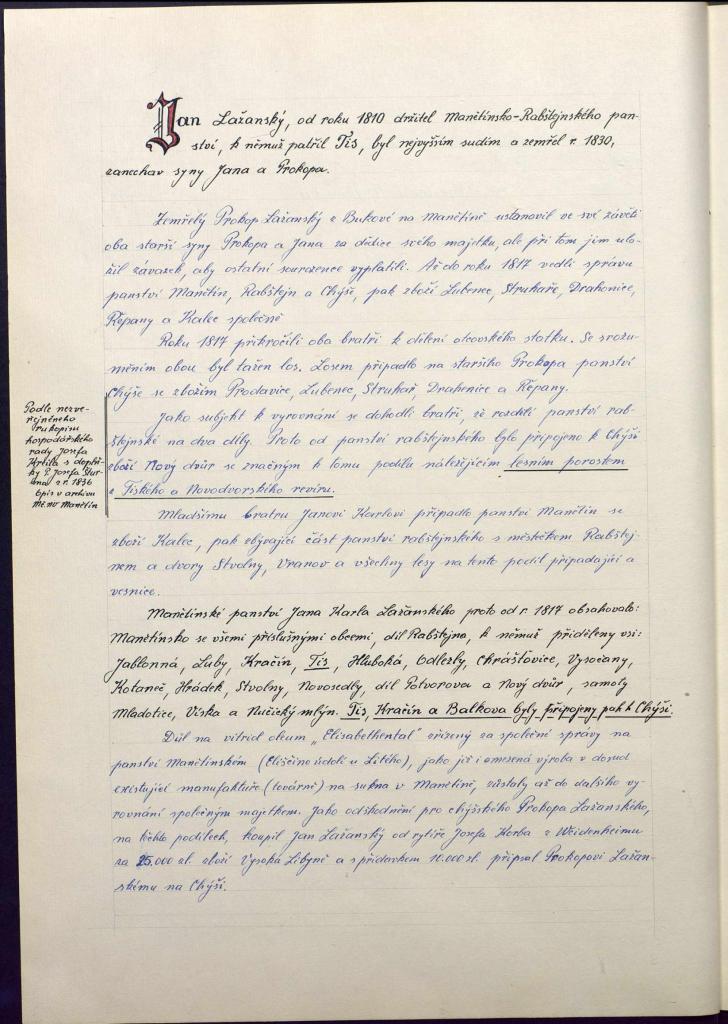 Jan Lažanský, od roku 1810 držitel Manětínsko-Rabštejnského pan-
ství, k němuž patřil Tis, byl nejvyšším sudím a zemřel r. 1830,
zanechav syny Jana a Prokopa.
Zemřelý Prokop Lažanský z Bukové na Manětíně ustanovil ve své závěti
oba starší syny Prokopa a Jana za dědice svého majetku, ale při tom jim ulo-
žil závazek, aby ostatní sourozence vyplatili. Až do roku 1817 vedli správu
panství Manětín, Rabštejn a Chýše, pak zboží Lubenec, Struhaře, Drahonice,
Řepany a Kalec společně
Roku 1817 přikročili oba bratři k dělení otcovského statku. Se srozu-
měním obou byl tažen los. Losem připadlo na staršího Prokopa panství
Chýše se zbožím Prodavice, Lubenec, Struhař, Drahenice a Řepany.
Jako subjekt k vyrovnání se dohodli bratři, že rozdělí panství rab-
štejnské na dva díly. Proto od panství rabštejnského bylo připojeno k Chýši
zboží Nový dvůr se značným k tomu podílu náležejícím lesním porostem
z Tiského a Novodvorského revíru.
Podle nezve-
řejněného
rukopisu
hospodářského
rady Josefa
s doplň-
ky P. Josefa
z r. 1836
Opis v archivu
Manětín
Mladšímu bratru Janovi Karlovi připadlo panství Manětín se
zboží Kalec, pak zbývající část panství rabštejnského s městečkem Rabštej-
nem a dvory Stvolny, Vranov a všechny lesy na tento podíl připadající a
vesnice.
Manětínské panství Jana Karla Lažanského proto od r. 1817 obsahovalo:
Manětínsko se všemi příslušnými obcemi, díl Rabštejna, k němuž přiděleny vsi:
Jablonná, Luby, Kračín, Tis, Hluboká, Odlezly, Chrášťovice, Vysočany,
Kotaneč, Hrádek, Stvolny, Novosedly, díl Potvorova a Nový dvůr, samoty
Mladotice, Víska a Nučický mlýn. Tis, Kračín a Balkova byly připojeny pak k Chýši.
Důl na vitriol oleum „Elisabethental" zřízený za společné správy na
panství Manětínském (Eliščino údolí u Lítého), jako již i omezená výroba v dosud
existující manufaktuře (továrně) na sukna v Manětíně, zůstaly až do dalšího vy-
rovnání společným majetkem. Jako odškodnění pro chýšského Prokopa Lažanského,
na těchto podílech, koupil Jan Lažanský od rytíře Josefa Korba z Weidenheimu
za 25.000 zl. zboží Vysoká Libyně a s přídavkem 10.000 zl. připsal Prokopovi Lažan-
skému na Chýši.